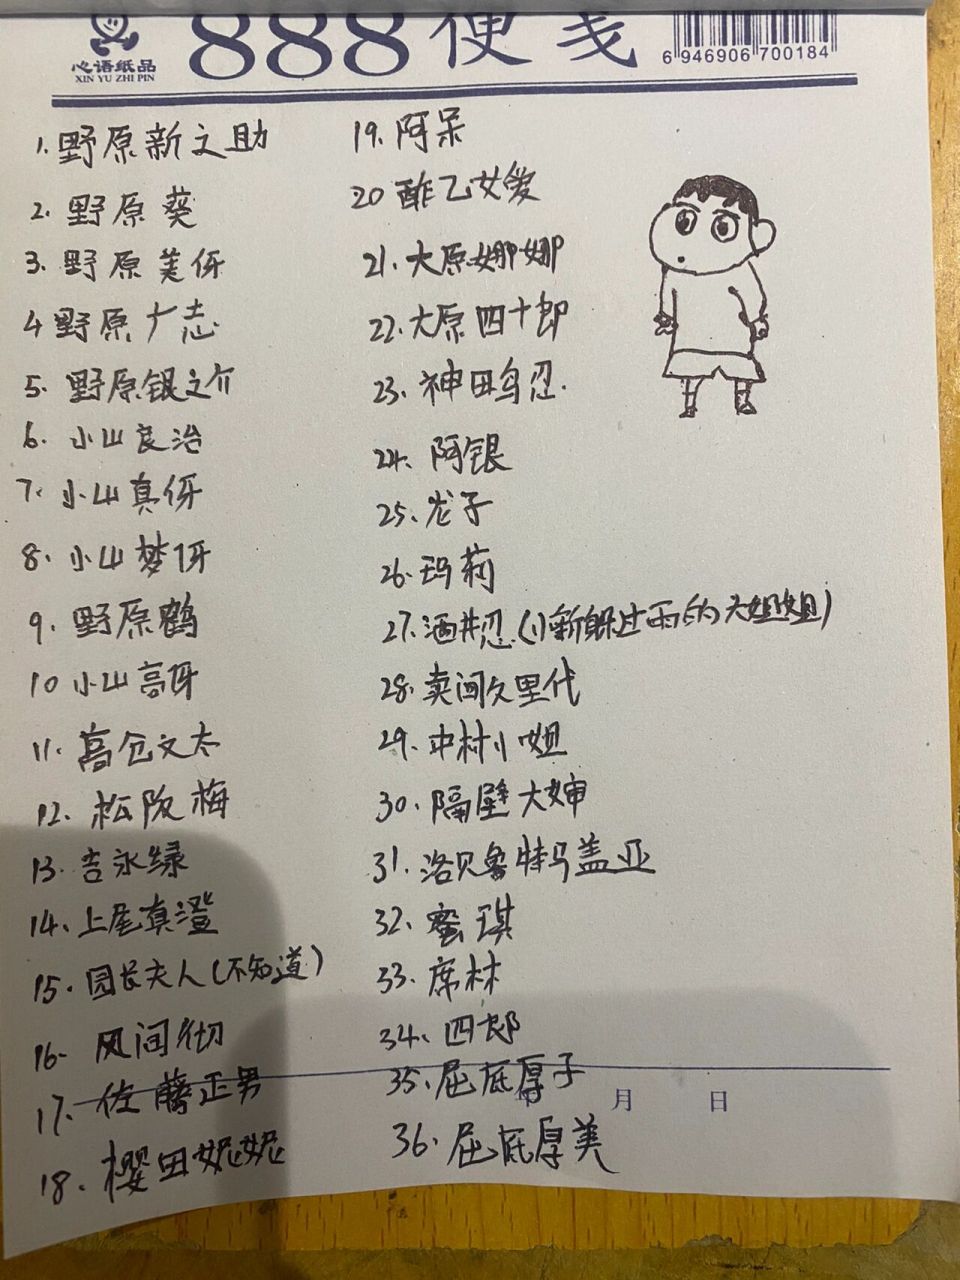 888便笺
心语纸品
XIN YU ZHI PIN
6 946906 700184
1. 野原新之助
2. 野原葵
3. 野原美伢
4 野原广志
5. 野原银之介
6. 小山良治
7. 小山真伢
8. 小山梦伢
9. 野原鹤
10 小山高伢
11. 高仓文太
12. 松阪梅
13. 吉永绿
14. 上尾真澄
15. 园长夫人(不知道)
16. 风间彻
17. 佐藤正男
18. 樱田妮妮
19. 阿呆
20 酢乙女爱
21. 大原娜娜
22. 大原四十郎
23. 神田鸟忍.
24. 阿银
25. 龙子
26. 玛莉
27. 酒井忍(小新躲过雨的大姐姐)
28. 卖间久里代
29. 中村小姐
30. 隔壁大婶
31. 洛贝鲁特马盖亚
32. 蜜琪
33. 席林
34. 四郎
35. 屈底厚子
36. 屈底厚美
月 日